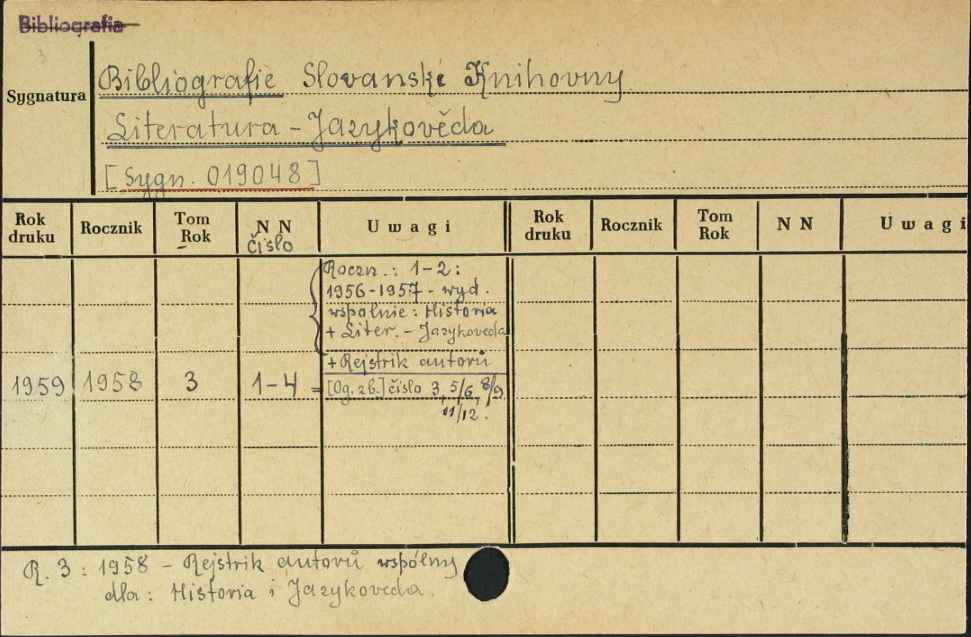 Bibliografia
Sygnatura
Bibliografie Slovanské Knihovny
Literatura - Jazykověda
[Sygn. 019048]
Rok druku Rocznik Tom Rok N N Uwagi Rok druku Rocznik Tom Rok N N Uwagi
číslo
Roczn.: 1-2:
1956-1957 - wyd.
wspólnie: Historia
+ Liter. - Jazykoveda
+ Rejstrik autorů
1959 1958 3 1-4 = [Og. zb.] číslo 3, 5/6, 8/9
11/12.
R. 3 : 1958 - Rejstrik autorů wspólny
dla: Historia i Jazykoveda.